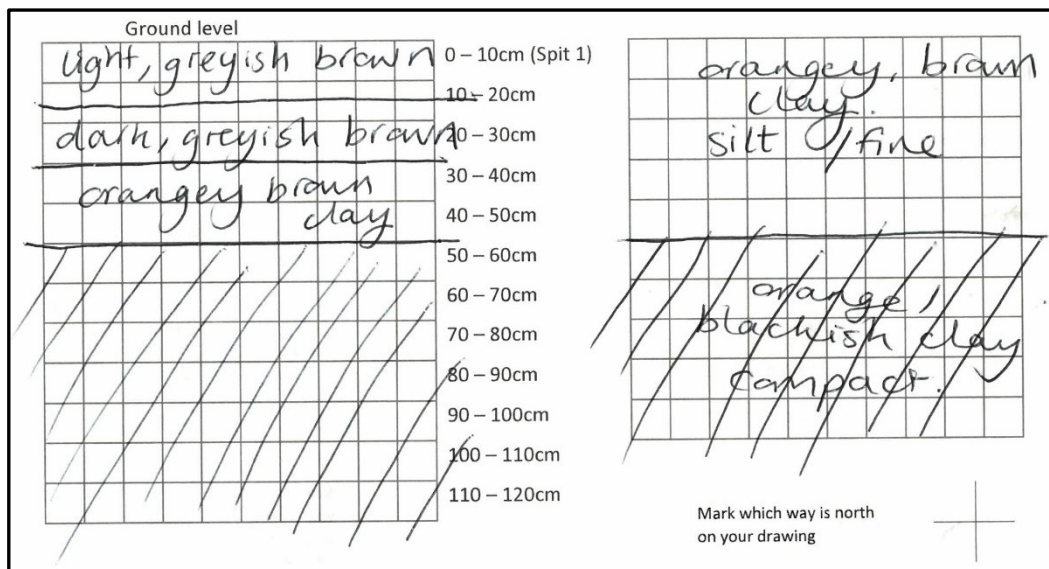 Ground level
light, greyish brown
dark, greyish brown
orangey brown
clay
0 – 10cm (Spit 1)
10 – 20cm
20 – 30cm
30 – 40cm
40 – 50cm
50 – 60cm
60 – 70cm
70 – 80cm
80 – 90cm
90 – 100cm
100 – 110cm
110 – 120cm
orangey, brown
clay.
silt / fine
orange /
blackish clay
compact.
Mark which way is north
on your drawing